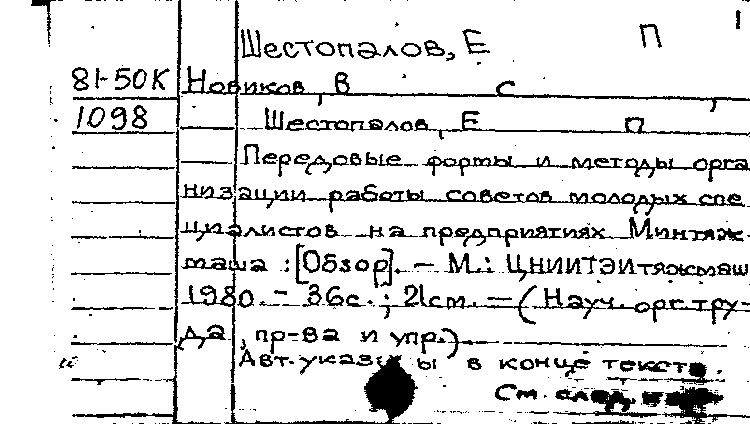 Шестопалов, Е П
81-50К Новиков, В С
1098 Шестопалов, Е П
Передовые формы и методы орга
низации работы советов молодых спе
циалистов на предприятиях Минтяж-
маша : [Обзор]. – М.: ЦНИИТЭИтяжмаш
1980. – 36с.; 21см. – (Науч. орг. тру-
да, пр-ва и упр.).
Авт. указ ы в конце текста.
См. след.